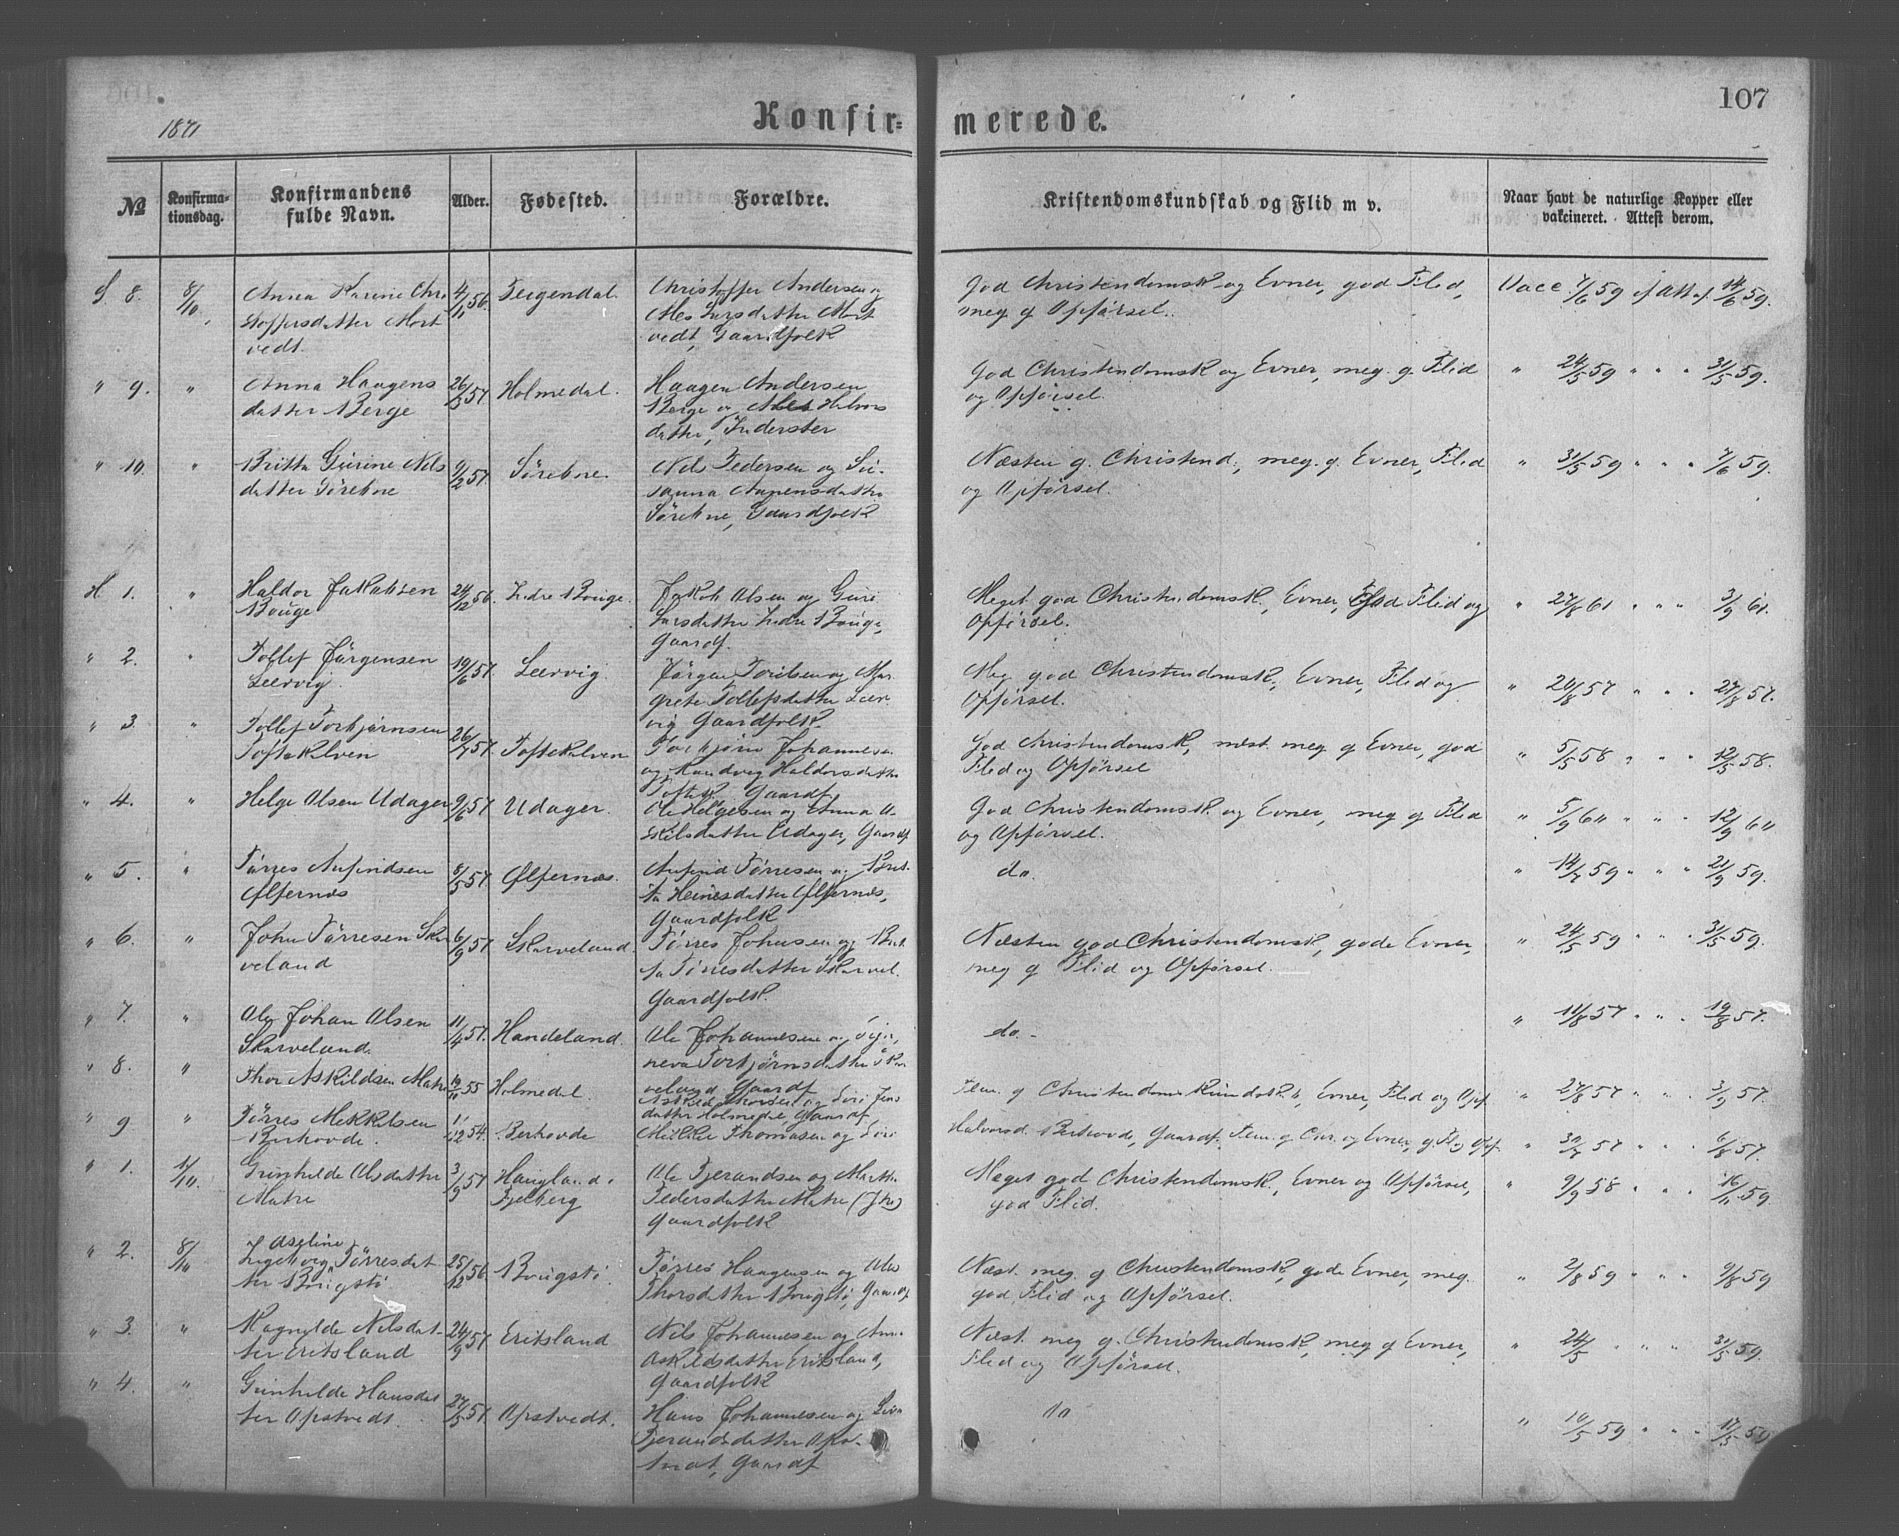 1871
Konfir= merede.
107
№
Konfirma-
tionsdag.
Konfirmandens
fulde Navn.
Alder.
Fødested.
Forældre.
Kristendomskundskab og Flid m v.
Naar havt de naturlige Kopper eller
vakcineret. Attest derom.
S 8. 8/10 Anna Karine Chri 4/11 56. Teigendal. Christoffer Andersen og God Christendomsk. og Evner, god Flid, Vacc. 7/6 59 if Att af 14/6 59.
stoffersdatter Mort Ales Larsdatter Mort meg g Opførsel.
vedt. vedt, Gaardfolk
" 9. " Anna Haagens 26/3 57 Holmedal. Haagen Andersen God Christendomsk og Evner, meg. g. Flid " 24/5 59 " " " 31/5 59.
datter Berge Berge og Ales Halvors og Opførsel.
datter, Inderster
" 10. " Britta Gurine Nils 9/2 57 Sörebne. Nils Pedersen og Su- Næsten g. Christend., meg. g. Evner, Flid " 31/5 59 " " " 7/6 59.
datter Sörebne sanna datter og Opførsel.
Sörebne, Gaardfolk
H. 1. " Haldor Jakobsen 24/12 56. Indre Bouge. Jakob Olsen og Guri Meget god Christendomsk., Evner, God Flid og " 27/8 61 " " " 3/9 61.
Bouge Larsdatter Indre Bouge, Opførsel.
Gaardf.
" 2. " Tollef Jörgensen 19/6 57. Leervig. Jörgen og Mar Meg god Christendomsk., Evner, Flid og " 20/8 57 " " " 27/8 57.
Leervig. grete Tollefsdatter Leer Opførsel.
vig Gaardfolk.
" 3. " Tollef Torbjörnsen 26/7 57. Toftekalven Torbjörn Johannesen God Christendomsk, næst. meg g Evner, god " 5/5 58 " " " 12/5 58.
Toftekalven og Randveg Haldorsdatter Flid og Opførsel
Gaardf.
" 4. " Helge Olsen Udager 9/6 57 Udager. Ole Helgesen og Anna A- God Christendomsk og Evner, meg g Flid " 5/9 60 " " 12/9 60
skilsdatter Udager, Gaardf og Opførsel.
" 5. " Törres Anfindsen 8/5 57 Ølfernæs. Anfind Törresen og Brit- do. " 14/7 59 " " " 21/9 59.
Ølfernæs ta Heinesdatter Ølfernæs,
Gaardfolk
" 6. " John Törresen Skar 6/9 57 Skarveland. Törres Johnsen og Brit- Næsten god Christendomsk, gode Evner, " 24/5 59 " " . 31/5 59.
veland ta Törresdatter Skarvel. meg g Flid og Opførsel.
Gaardfolk.
" 7. " Ole Johan Olsen 11/4 57. Handeland. Ole Johannesen og do. " 11/8 57 " " . 19/8 57.
Skarveland. neva Torbjörnsdatter Skar
veland Gaardf
" 8. " Thor Askildsen Matre 10/11 55 Holmedal. Askild Thorsen og Siri Jens Tem. g Christendomskundskab, Evner, Flid og Opf. " 27/8 57 " " " 3/9 57.
datter Holmedal, Gaardf.
" 9 " Törres Mekkelsen 1/12 54. Berhovde Mekkel Thomasen og Siri Halvorsd. Berhovde, Gaardf. Tem. g Chr. og Evner, g Fl og Opf. " 30/7 57 " " " 6/8 57.
Berhovde.
" 1. 1/10. Gunhilde Olsdatter 3/9 57 Haugland i Ole Tjerandsen og Martha Meget god Christendomsk., Evner og Opførsel, " 9/9 58 " " . 16/11 59.
Matre Fjelberg Pedersdatter Matre god Flid.
Gaardfolk
" 2. 8/10 Aseline
Ingeborg Törresdat 25/12 56. Bougstö. Törres Haagensen og Ales Næst. meg. g Christendomsk., gode Evner, meg. " 2/8 59 " " . 9/8 59
ter Bougstö Thorsdatter Bougstö, Gaardf god Flid og Opførsel.
" 3. " Ragnilde Nilsdat- 24/9 57. Eritsland Nils Johannesen og Anna Næst. meg g. Christendomsk., meg g Evner, " 24/5 " " " 31/5 59.
ter Eritsland Askildsdatter Eritsland, Flid og Opførsel.
Gaardfolk
" 4. " Gunhilde Hansdat 27/5 57. Opstvedt. Hans Johannesen og do " 10/5 59 " " . 17/5 59
ter Opstvedt. Tjerandsdatter
Gaardf